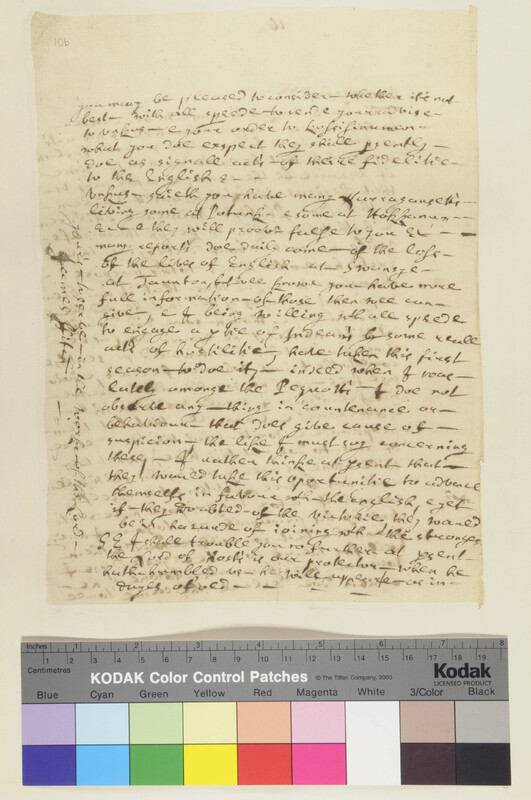 10b
you may be pleased to consider whether it be not
best with all speede to send your advise
to Unkus & your order to
what you doe expect they shall psently
doe as signall acts of theire fidelitie
to the English &
Unkus saieth you have many Narragansetts
living some at & some at
& they will proove false to you &
many reports doe daile come of the loss
of the lives of English at Swansye
at Taunton, but wee knowe you have more
full information of those then wee can
give, & I being willing wth all speede
to engage a ptie of Indeans by some reall
acts of hostilitie have taken this first
season to doe it, indeed when I was
latele amongst the Pequotts I doe not
observe any thing in countenance or
behaviour that does give cause of
suspicion the like I must say concerning
these I rather thinke at psent that
they would take this oportunitie to advance
themselfs in favour wth the english, & yet
if they doubted of the victorie they would
be in hazarde of joining wth the stronger
I shall trouble you no further at psent
the Lord of Hosts is our protector when he
hath humbled us he will appeare as in
dayes of old
yours to serve in the worke of the Lord
James Fitch
Inches 1 2 3 4 5 6 7 8
Centimetres 1 2 3 4 5 6 7 8 9 10 11 12 13 14 15 16 17 18 19
KODAK Color Control Patches © The Tiffen Company, 2000 Kodak
LICENSED PRODUCT
Blue Cyan Green Yellow Red Magenta White 3/Color Black